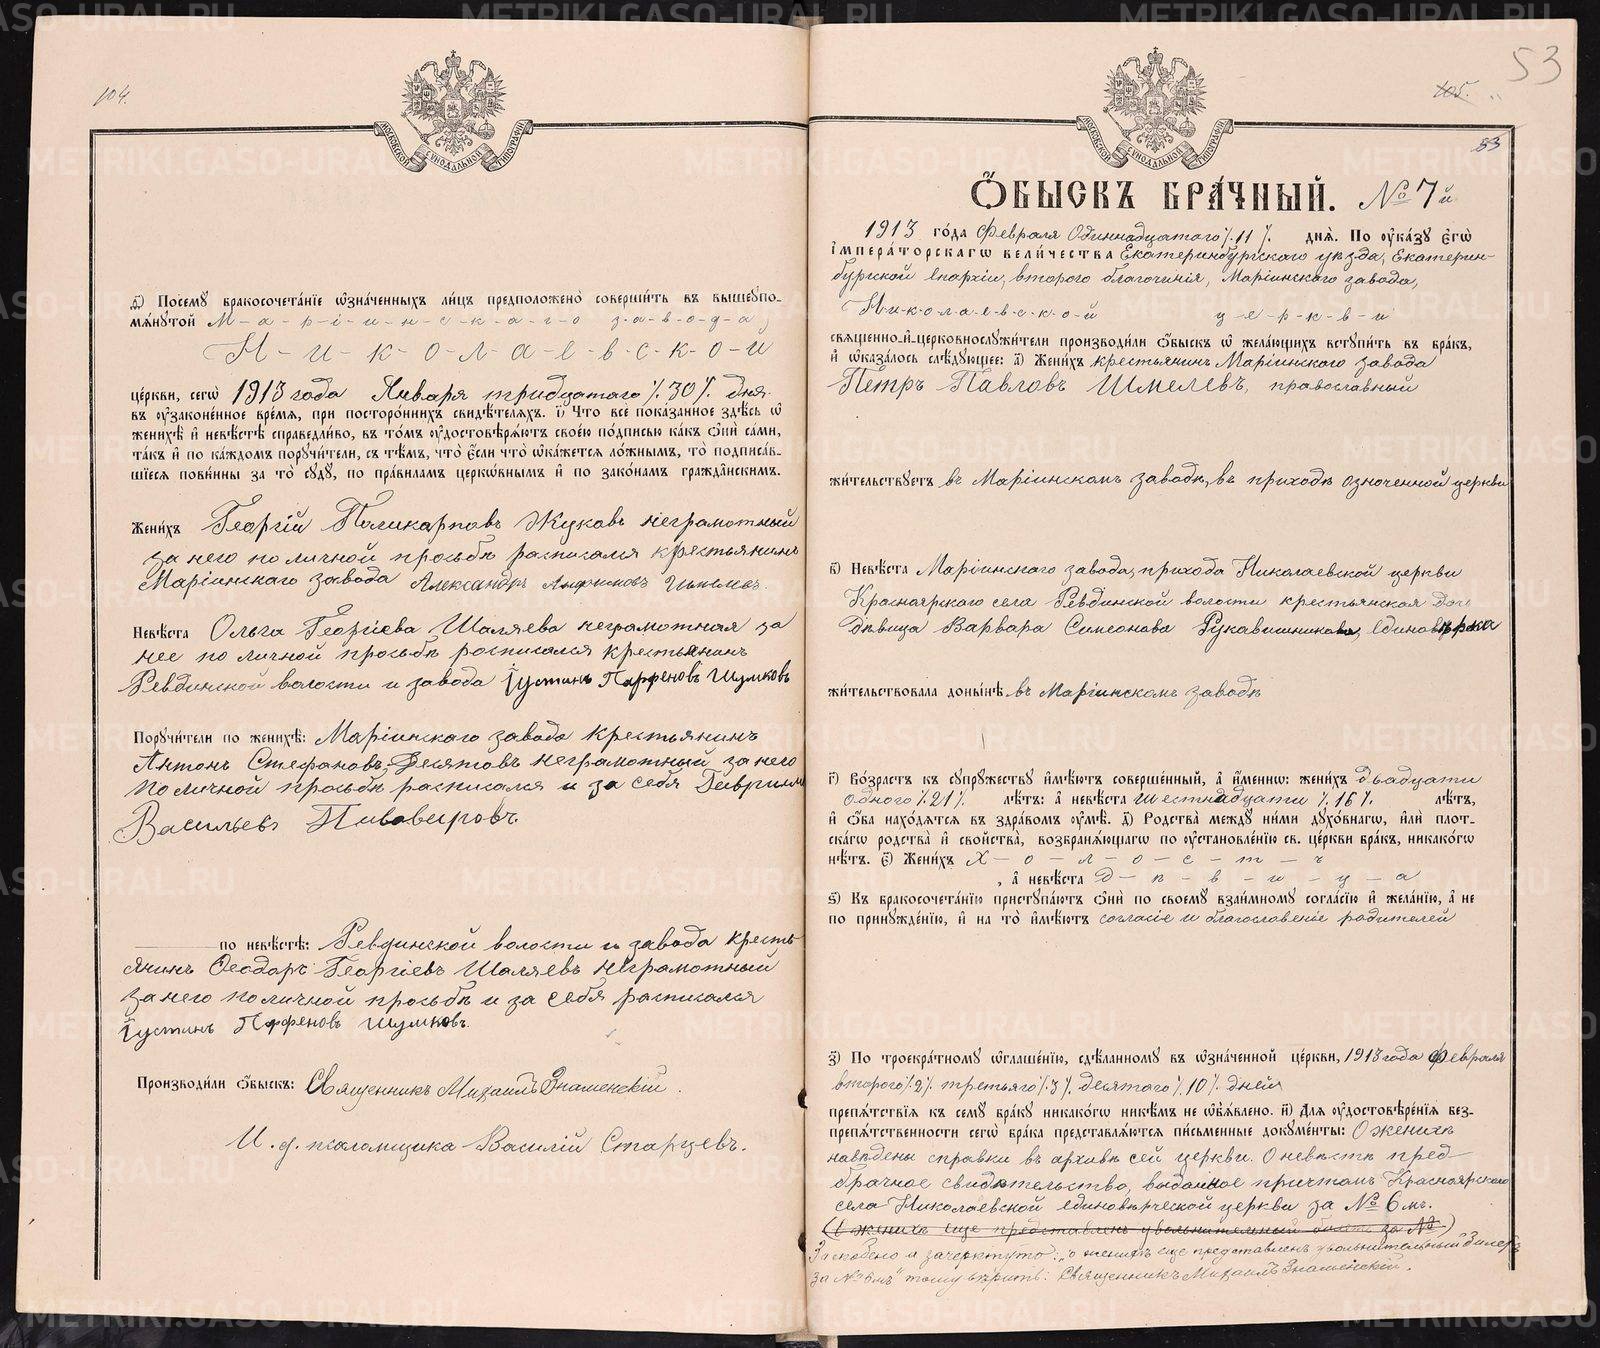 104.
МОСКОВСКОЙ СѴНОДАЛЬНОЙ ТИПОГРАФІИ
д҃) Посемꙋ бракосочетаніе ѡзначенныхъ лицъ предположено совершить въ вышеꙋпо-
мянꙋтой М-а-р-і-и-н-с-к-а-г-о з-а-в-о-д-а
Н-и-к-о-л-а-е-в-с-к-о-й
церкви, сегѡ 1913 года Января тридцатаго /.30/. дня
въ ꙋзаконенное время, при постороннихъ свидѣтеляхъ. і҃) Что все показанное здѣсь ѡ
женихѣ и невѣстѣ справедливо, въ томъ ꙋдостовѣряютъ своею подписью какъ ѻни сами,
такъ и по каждомъ порꙋчители, съ тѣмъ, что если что ѡкажется ложнымъ, то подписав-
шіеся повинны за то сꙋдꙋ, по правиламъ церковнымъ и по законамъ гражданскимъ.
Женихъ Георгій Поликарповъ Жуковъ неграмотный
за него по личной просьбѣ расписался крестьянинъ
Маріинскаго завода Александръ
Невѣста Ольга Георгіева Шаляева неграмотная за
нее по личной просьбѣ росписался крестьянинъ
Ревдинской волости и завода Іустинъ Парфеновъ Шумковъ
Порꙋчители по женихѣ: Маріинскаго завода крестьянинъ
Антонъ Стефановъ Десятовъ неграмотный за него
по личной просьбѣ расписался и за себя Гавріилъ
Васильевъ Пивоваровъ
по невѣстѣ: Ревдинской волости и завода кресть-
янинъ Ѳеодоръ Георгіевъ Шаляевъ неграмотный
за него по личной просьбѣ и за себя расписался
Іустинъ Парфеновъ Шумковъ.
Производили ѻбыскъ: Священникъ Михаилъ Знаменскій.
И. д. псаломщика Василій Старцевъ.
105.
53
МОСКОВСКОЙ СѴНОДАЛЬНОЙ ТИПОГРАФІИ
53
Ѻбыскъ брачный. № 7й
1913 года Февраля Одиннадцатаго /.11/. дня. По ꙋказꙋ Егѡ
Императорскагѡ Величества Екатеринбургскаго уѣзда, Екатерин-
бургской епархіи, второго благочинія, Маріинскаго завода,
Н-и-к-о-л-а-е-в-с-к-о-й ц-е-р-к-в-и
священно-и-церковнослꙋжители производили ѻбыскъ ѡ желающихъ встꙋпить въ бракъ,
и ѡказалось слѣдꙋющее: а҃) Женихъ крестьянинъ Маріинскаго завода
Петръ Павловъ Шмелевъ, православный
жительствꙋетъ въ Маріинскомъ заводѣ, въ приходѣ означенной церкви
в҃) Невѣста Маріинскаго завода, прихода Николаевской церкви
Красноярскаго села Ревдинской волости крестьянская дочь
дѣвица Варвара Симеонова Рукавишникова, единовѣрка
жительствовала донынѣ въ Маріинскомъ заводѣ
г҃) Возрастъ къ сꙋпрꙋжествꙋ имѣютъ совершенный, а именнѡ: женихъ двадцати
одного /.21/. лѣтъ: а невѣста шестнадцати /.16/. лѣтъ,
и ѻба находятся въ здравомъ ꙋмѣ. д҃) Родства междꙋ ними дꙋховнагѡ, или плот-
скагѡ родства и свойства, возбраняющагѡ по ꙋстановленію св. церкви бракъ, никакогѡ
нѣтъ. є҃) Женихъ Х-о-л-о-с-т-ъ
, а невѣста д-ѣ-в-и-ц-а
ѕ҃) Къ бракосочетанію пристꙋпаютъ ѻни по своемꙋ взаимномꙋ согласію и желанію, а не
по принꙋжденію, и на то имѣютъ согласіе и благословеніе родителей
з҃) По троекратномꙋ ѡглашенію, сдѣланномꙋ въ ѡзначенной церкви, 1913 года Февраля
второго /.2/. третьяго /.3/. десятаго /.10/. дней
препятствія къ семꙋ бракꙋ никакогѡ никѣмъ не ѡбъявлено. и҃) Для ꙋдостовѣренія без-
препятственности сегѡ брака представляются письменные докꙋменты: О женихѣ
наведены справки въ архивѣ сей церкви. О невѣстѣ пред-
брачное свидѣтельство, выданное причтомъ Красноярскаго
села Николаевской единовѣрческой церкви за № 6мъ.
(О женихѣ еще представленъ увольнительный билетъ за №)
Заскоблено и зачеркнуто: „о женихѣ еще представленъ увольнительный билетъ
за № 6мъ" тому вѣрить: Священникъ Михаилъ Знаменскій.